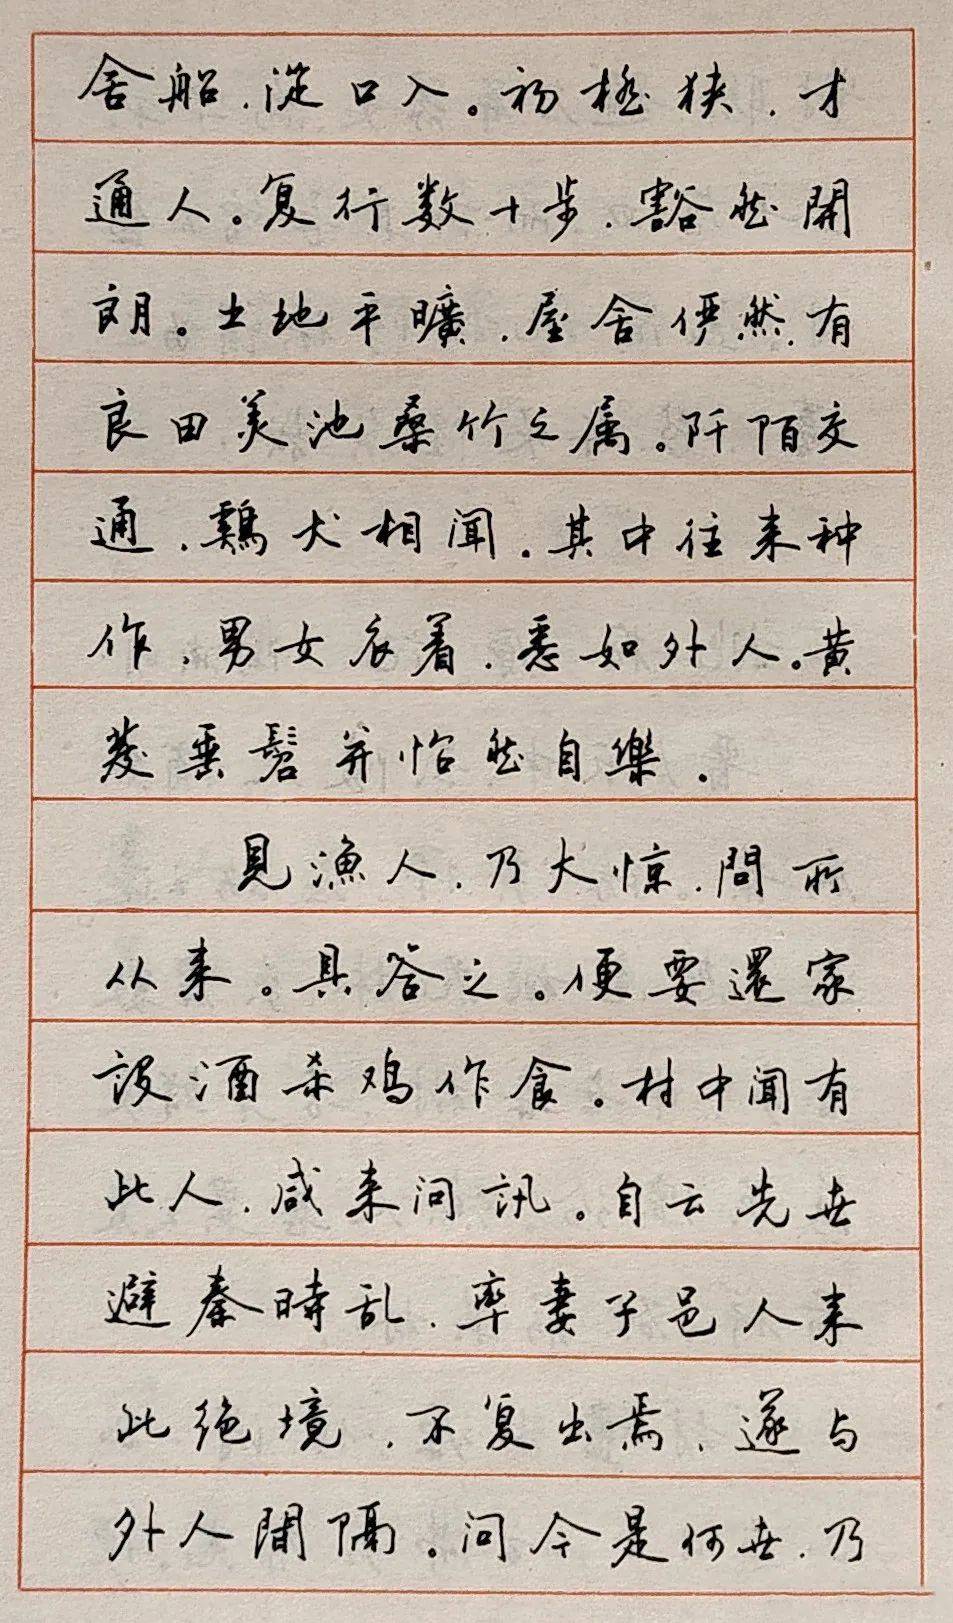 舍船，從口入。初極狭，才
通人。复行数十步，豁然開
朗。土地平曠，屋舍俨然，有
良田美池桑竹之属。阡陌交
通，鷄犬相闻。其中往来种
作，男女衣着，悉如外人。黄
发垂髫并怡然自樂。
見漁人，乃大惊，問所
从来。具答之。便要還家
設酒杀鸡作食。村中闻有
此人，咸来问訊。自云先世
避秦時乱，率妻子邑人来
此绝境，不复出焉，遂与
外人間隔。问今是何世，乃